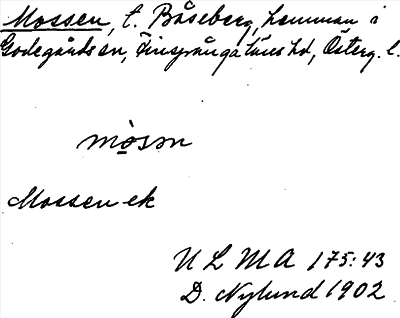 Mossen, t. Båseberg, hemman i
Godegårds sn, Finspånga läns hd, Österg. l.
mò̱sən
Mossen ek
U L M A 175:43
D. Nylund 1902